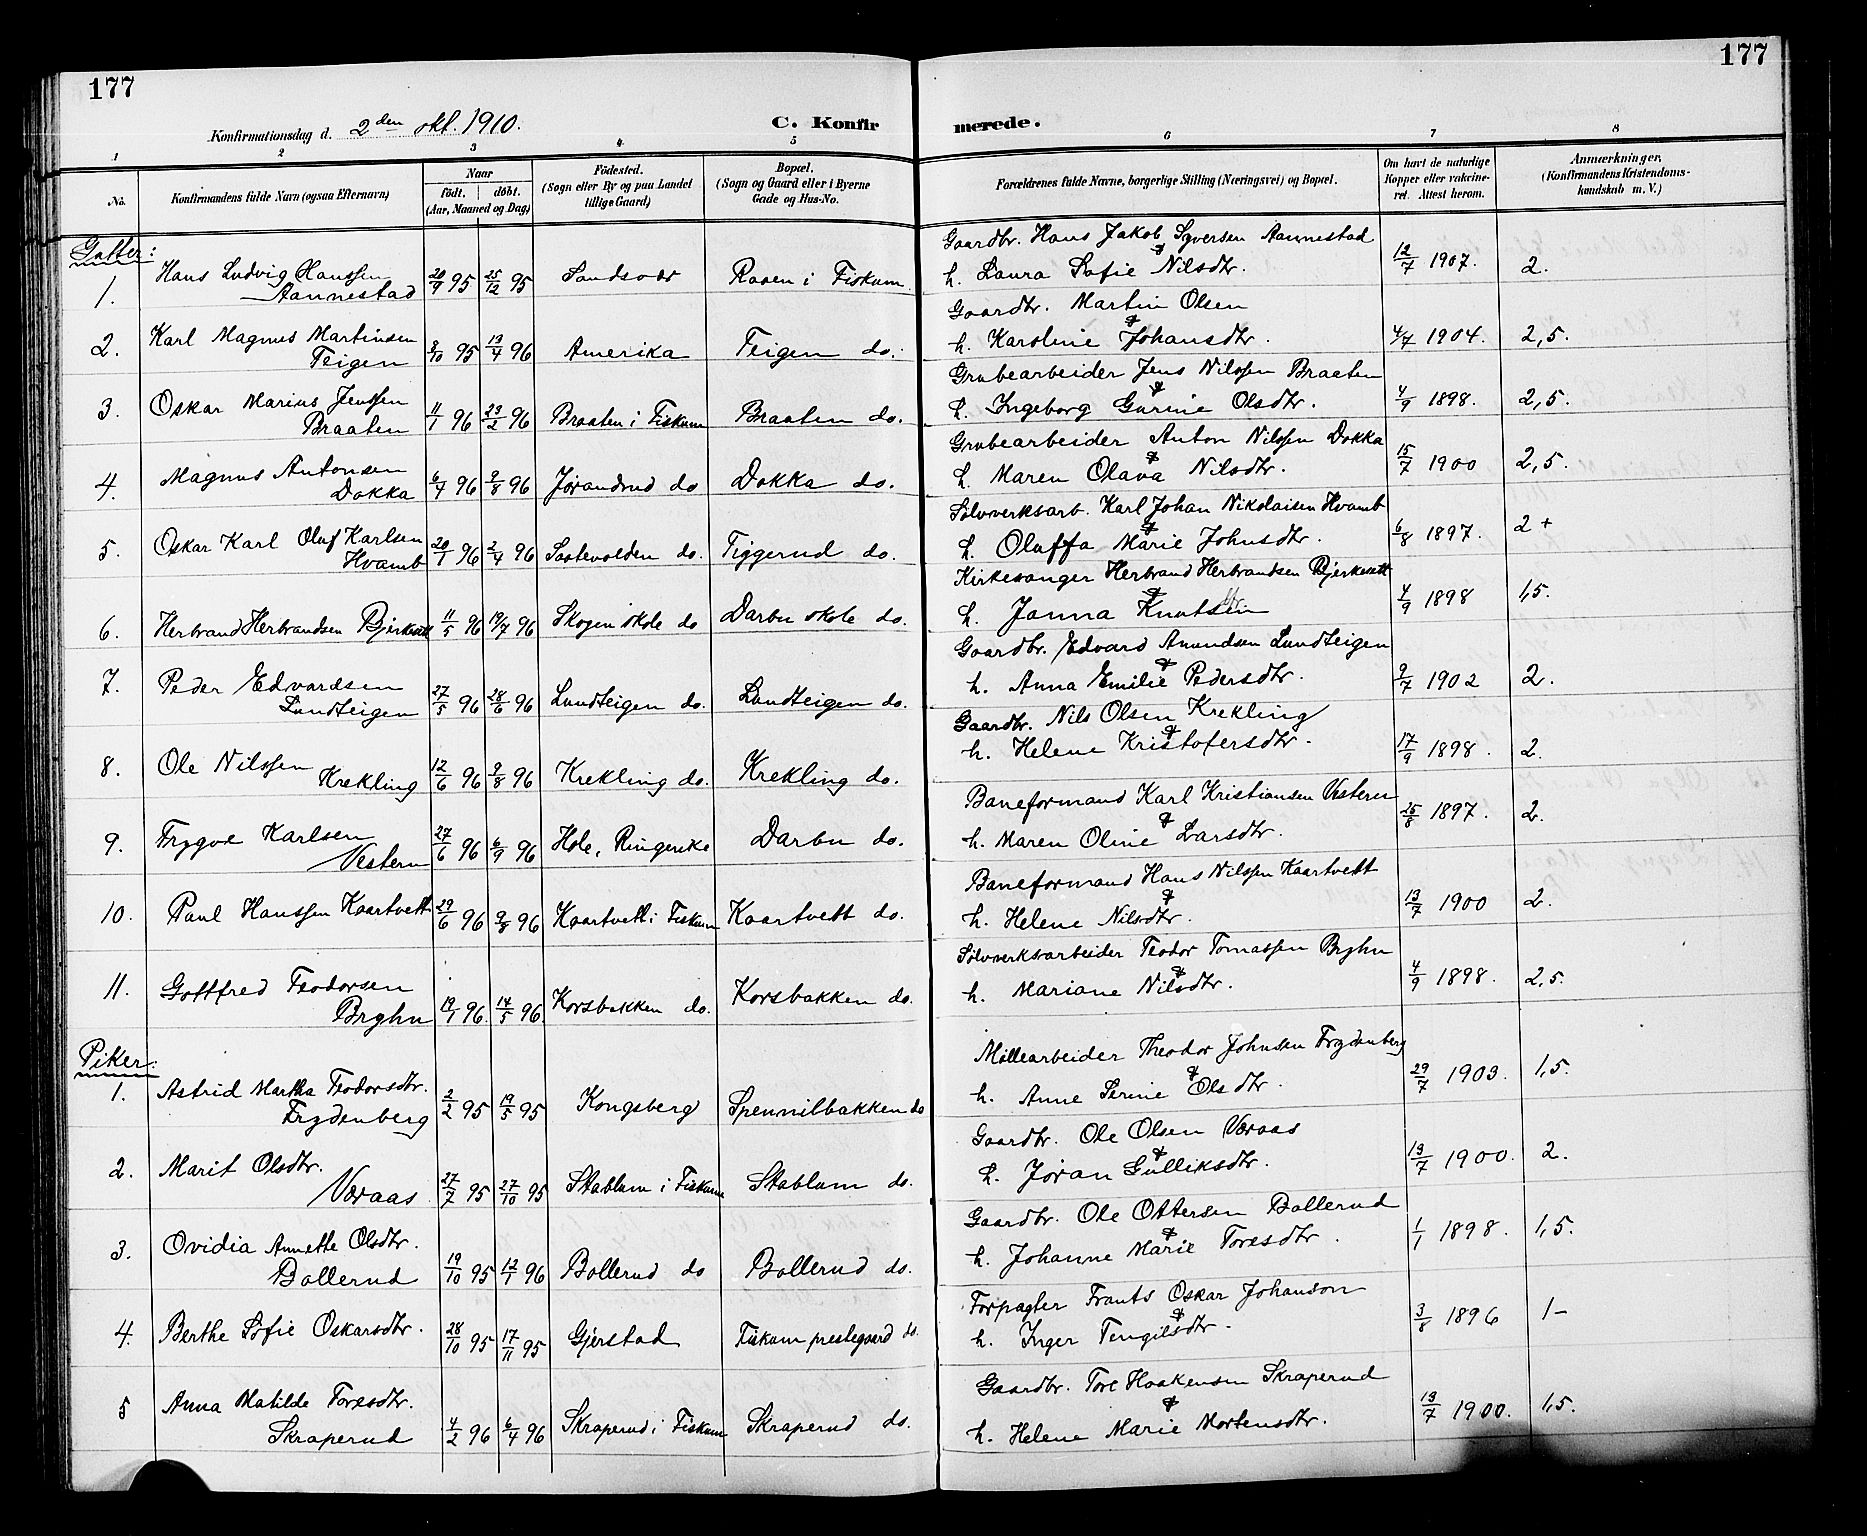 177
177
Konfirmationsdag d. 2den okt. 1910.
C. Konfirmerede.
1 2 3 4 5 6 7 8
No.
Konfirmandens fulde Navn (ogsaa Efternavn)
Naar
født. døbt.
(Aar, Maaned og Dag)
Fødested.
(Sogn eller By og paa Landet
tillige Gaard)
Bopæl.
(Sogn og Gaard eller i Byerne
Gade og Hus-No.
Forældrenes fulde Navne, borgerlige Stilling (Næringsvei) og Bopæl.
Om havt de naturlige
Kopper eller vakcine-
ret. Attest herom.
Anmærkninger,
(Konfirmandens Kristendoms-
kundskab m. V.)
Gutter:
1. Hans Ludvig Hanssen Aannestad 20/9 95 25/12 95 Sandsvær Raaen i Fiskum Gaardbr. Hans Jakob Syversen Aannestad
& h. Laura Sofie Nilsdtr. 12/7 1907. 2.
2. Karl Magnus Martinsen Teigen 3/10 95 13/4 96 Amerika Teigen do. Gaardbr. Martin Olsen
& h. Karoline Johansdtr. 4/7 1904. 2,5.
3. Oskar Marius Jenssen Braaten 11/1 96 23/2 96 Braaten i Fiskum Braaten do. Grubearbeider Jens Nilssen Braaten
& h. Ingeborg Gurine Olsdtr. 4/9 1898. 2,5.
4. Magnus Antonsen Dokka 6/4 96 9/8 96 Jørandrud do Dokka do. Grubearbeider Anton Nilssen Dokka
& h. Maren Olava Nilsdtr. 15/7 1900 2,5.
5. Oskar Karl Oluf Karlsen Hvamb 20/1 96 2/4 96 Saatevolden do. Tiggerud do. Sølvverksarb. Karl Johan Nikolaisen Hvamb
& h. Oluffa Marie Johnsdtr. 6/8 1897. 2 +
6. Herbrand Herbrandsen Bjerkesett 11/5 96 19/7 96 Skogen skole do Darbu skole do. Kirkesanger Herbrand Herbrandsen Bjerkesett
& h. Janna Knutsen 4/9 1898 1,5.
7. Peder Edvardsen Lundteigen 27/5 96 28/6 96 Lundteigen do. Lundteigen do. Gaardbr. Edvard Amundsen Lundteigen
& h. Anna Emilie Pedersdtr. 9/7 1902 2.
8. Ole Nilssen Krekling 12/6 96 9/8 96 Krekling do. Krekling do. Gaardbr. Nils Olsen Krekling
& h. Helene Kristofersdtr. 17/9 1898. 2.
9. Trygve Karlsen Vestern 27/6 96 6/9 96 Hole, Ringerike Darbu do. Baneformand Karl Kristiansen Vestern
& h. Maren Oline Larsdtr. 25/8 1897. 2.
10. Paul Hanssen Kaartvett 29/6 96 9/8 96 Kaartvett i Fiskum Kaartvett do. Baneformand Hans Nilssen Kaartvett
& h. Helene Nilsdtr. 13/7 1900 2.
11. Gottfred Teodorsen Bryhn 19/1 96. 14/5 96 Korsbakken do. Korsbakken do. Sølvverksarbeider Teodor Tomassen Bryhn
& h. Mariane Nilsdtr. 4/9 1898. 2,5.
Piker:
1. Astrid Martha Teodorsdtr. Frydenberg 2/2 95 19/5 95 Kongsberg Spennilbakken do Møllearbeider Theodor Johnsen Frydenberg
& h. Anne Serine Olsdtr. 29/7 1903. 1,5.
2. Marit Olsdtr. Væraas 27/7 95 27/10 95 Stablum i Fiskum Stablum do. Gaardbr. Ole Olsen Væraas
& h. Jøran Gulliksdtr. 13/7 1900. 2.
3. Ovidia Annette Olsdtr. Bollerud 19/10 95 12/1 96 Bollerud do Bollerud do. Gaardbr. Ole Ottersen Bollerud
& h. Johanne Marie Toresdtr. 1/1 1898. 1,5.
4. Berthe Sofie Oskarsdtr. 28/10 95 17/11 95 Gjerstad Fiskum prestegaard do. Forpagter Frants Oskar Johanson
& h. Inger Tengilsdtr. 3/8 1896 1-
5 Anna Matilde Toresdtr. Skraperud 4/2 96 6/4 96 Skraperud i Fiskum Skraperud do. Gaardbr. Tore Haakensen Skraperud
& h. Helene Marie Mortensdtr. 13/7 1900. 1,5.